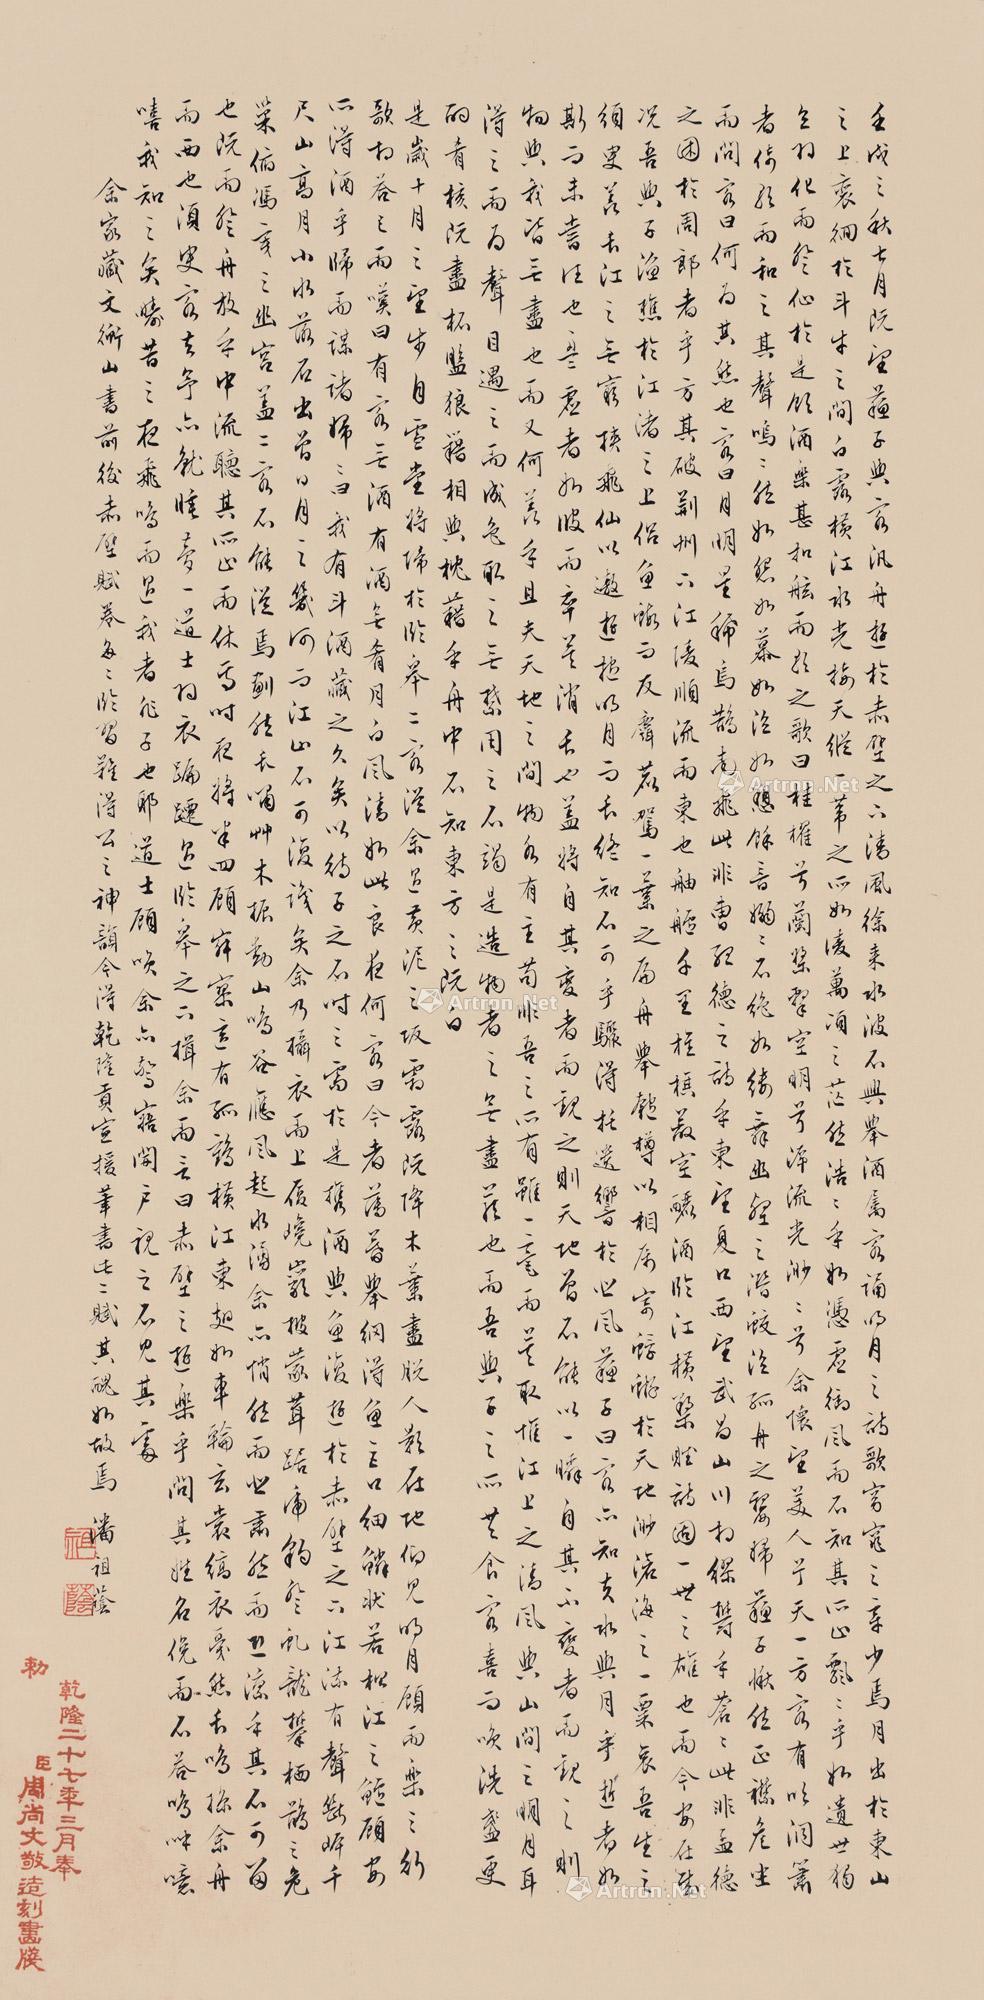 壬戌之秋七月既望蘇子與客汎舟遊於赤壁之下清風徐來水波不興舉酒屬客誦明月之詩歌窈窕之章少焉月出於東山
之上裵徊於斗牛之間白露橫江水光接天縱一葦之所如淩萬頃之茫然浩〻乎如憑虛御風而不知其所止飄〻乎如遺世獨
立羽化而登仙於是飲酒樂甚扣舷而歌之歌曰桂櫂兮蘭槳擊空明兮泝流光渺〻兮余懷望美人兮天一方客有吹洞簫
者倚歌而和之其聲嗚〻然如怨如慕如泣如愬餘音嫋〻不絶如縷舞幽壑之潛蛟泣孤舟之嫠婦蘇子愀然正襟危坐
而問客曰何爲其然也客曰月明星稀烏鵲南飛此非曹孟德之詩乎東望夏口西望武昌山川相繆鬱乎蒼〻此非孟德
之困於周郎者乎方其破荆州下江陵順流而東也舳艫千里旌旗蔽空釃酒臨江橫槊賦詩固一世之雄也而今安在哉
況吾與子漁樵於江渚之上侶魚蝦而友麋鹿駕一葉之扁舟舉匏樽以相屬寄蜉蝣於天地渺滄海之一粟哀吾生之
須臾羨長江之無窮挾飛仙以遨遊抱明月而長終知不可乎驟得托遺響於悲風蘇子曰客亦知夫水與月乎逝者如
斯而未嘗往也盈虛者如彼而卒莫消長也蓋將自其變者而觀之則天地曾不能以一瞬自其不變者而觀之則
物與我皆無盡也而又何羨乎且夫天地之間物各有主苟非吾之所有雖一毫而莫取惟江上之清風與山間之明月耳
得之而爲聲目遇之而成色取之無禁用之不竭是造物者之無盡藏也而吾與子之所共食客喜而唉洗盞更
酌肴核既盡杯盤狼藉相與枕藉乎舟中不知東方之既白
是歲十月之望步月雪堂將歸於臨皋二客從余過黃泥之坂霜露既降木葉盡脫人影在地仰見明月顧而樂之行
歌相答已而嘆曰有客無酒有酒無肴月白風清如此良夜何客曰今者薄暮舉網得魚巨口細鱗狀若松江之鱸顧安
所得酒乎歸而謀諸婦〻曰我有斗酒藏之久矣以待子之不時之需於是攜酒與魚復遊於赤壁之下江流有聲斷岸千
尺山高月小水落石出曾日月之幾何而江山不可復識矣余乃攝衣而上履巉巖披蒙茸踞虎豹登虬龍攀栖鶻之危
巢俯馮夷之幽宮蓋二客不能從焉劃然長嘯艸木振動山鳴谷應風起水涌余亦悄然而悲肅然而恐凛乎其不可留
也既而登舟放乎中流聽其所止而休焉時夜將半四顧寂寥適有孤鶴橫江東翅如車輪玄裳縞衣戛然長鳴掠余舟
而西也須臾客去予亦就睡夢一道士羽衣蹁躚過臨皋之下揖余而言曰赤壁之遊樂乎問其姓名俛而不答嗚呼噫
嘻我知之矣疇昔之夜飛鳴而過我者非子也耶道士顧唉余亦驚寤開戶視之不見其處
余家藏文衡山書前後赤壁賦卷每〻臨習難得公之神韻今得乾隆貢宣援筆書此二賦其醜如故焉 潘祖蔭
祖
蔭
乾隆二十七年三月奉
勅
臣周尚文敬造刻畫牋
Artron.Net
Artron.Net
Artron.Net